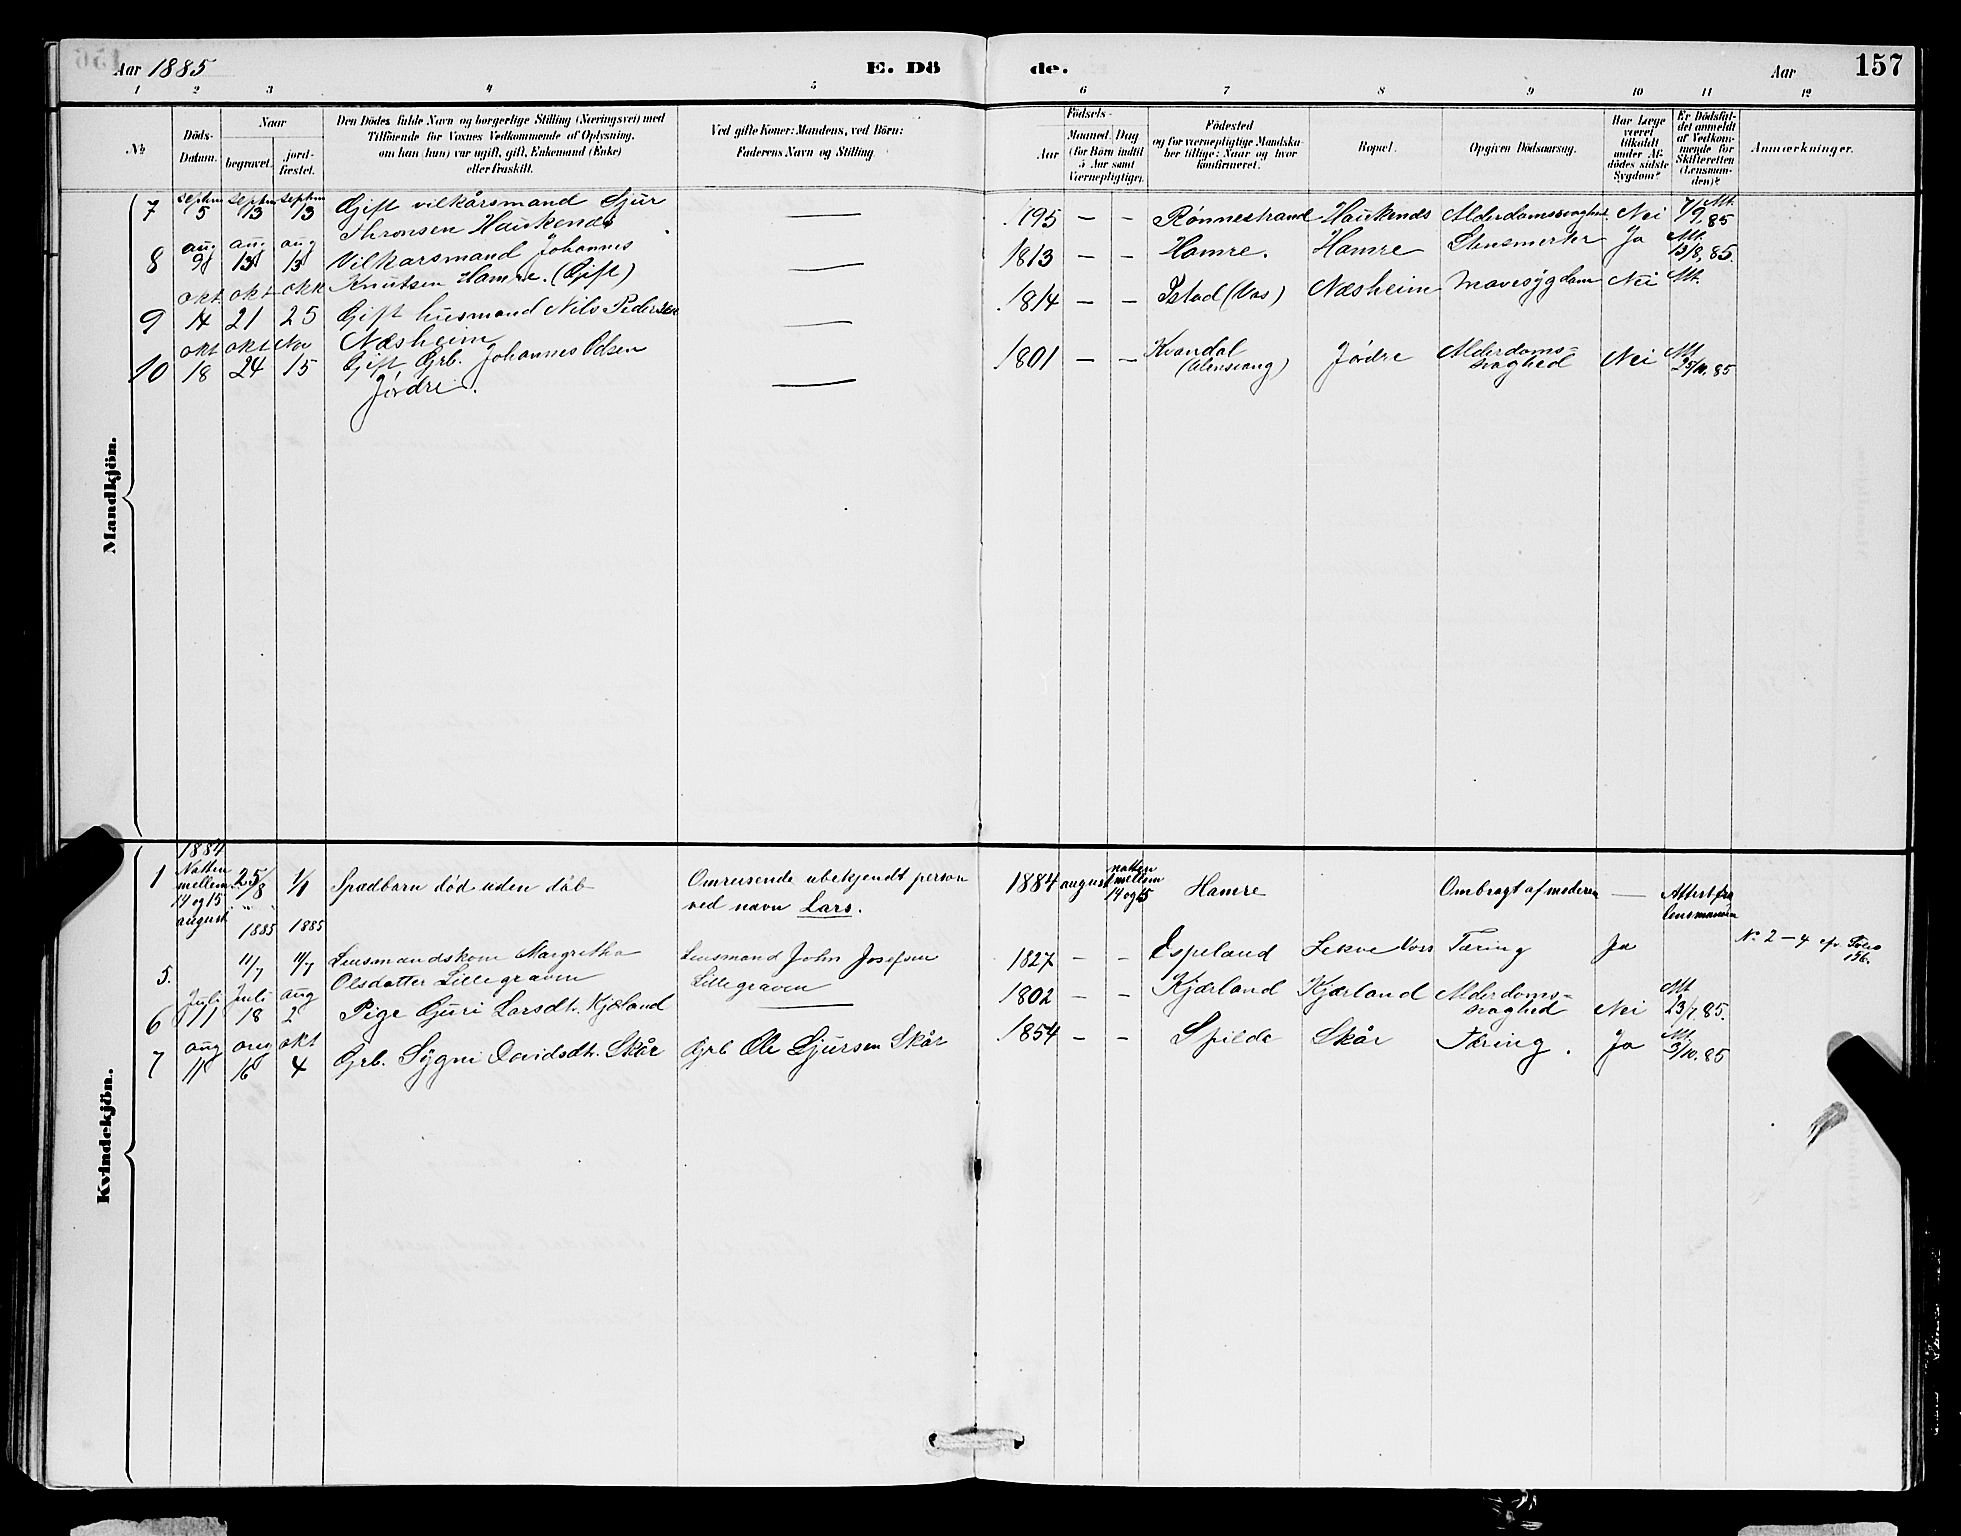 Aar 1885
E. Dö
de.
Aar
157
1 2 3 4 5 6 7 8 9 10 11 12
No
Döds-
Datum.
Naar
begravet.
jord-
fæstet.
Den Dödes fulde Navn og borgerlige Stilling (Næringsvei) med
Tilföiende for Voxnes Vedkommende af Oplysning,
om han (hun) var ugift, gift, Enkemand (Enke)
eller fraskilt.
Ved gifte Koner: Mandens, ved Börn:
Faderens Navn og Stilling.
Födsels-
Aar
Maaned
Dag
(for Börn indtil
5 Aar samt
Værnepligtige).
Födested
og for værnepligtige Mandska-
ber tillige: Naar og hvor
konfirmeret.
Bopæl.
Opgiven Dödsaarsag.
Har Læge
været
tilkaldt
under Af-
dödes sidste
Sygdom?
Er Dödsfal-
det anmeldt
af Vedkom-
mende for
Skifteretten
(Lensman-
den)?
Anmærkninger.
Mandkjön.
7 septm 5 septm 13 septm 13 Gift vilkårsmand Sjur
Thronsen Haukenæs — 195 – – Rønnestrand Haukenæs Alderdomssvaghed Nei Att. 7/9, 85
8 aug 9 aug 13 aug 13 Vilkarsmand Johannes
Knutsen Hamre. (Gift) — 1813 – – Hamre. Hamre Stensmerter Ja Att. 13/8, 85.
9 okt 14 okt 21 okt 25 Gift husmand Nils Pedersen
Næsheim — 1814 – – Istad (Vos) Næsheim Mavesygdom Nei Att.
10 okt 18 okt 24 Nov 15 Gift Grb. Johannes Olsen
Jørdre. — 1801 – – Kvandal
(Ulensvang) Jørdre Alderdoms=
svaghed Nei Att 25/10. 85
Kvindekjön.
1 1884
Natten
mellem
14 og 15
august 25/8 1/1 Spædbarn død uden dåb Omreisende ubekjendt person
ved navn Lars. 1884 august natten
mellem
14 og 15 Hamre Ombragt af moderen — Attest fra
lensmanden
5. 1885 11/7 1885 11/7 Lensmandskone Margretha
Olsdatter Lillegraven Lensmand John Josefsen
Lillegraven 1827 – – Espeland Lekve Voss Tæring Ja No 2–4 cfr. Folio
156.
6 Juli 11 Juli 18 aug 2 Pige Guri Larsdt. Kjærland — 1802 – – Kjærland Kjærland Alderdoms=
svaghed Nei Att 23/7 85.
7 aug 11 aug 16 okt 4 Grb. Sygni Davidsdt. Skår Grb Ole Sjursen Skår 1854 – – Spilde Skår Tæring. Ja Att 3/10. 85